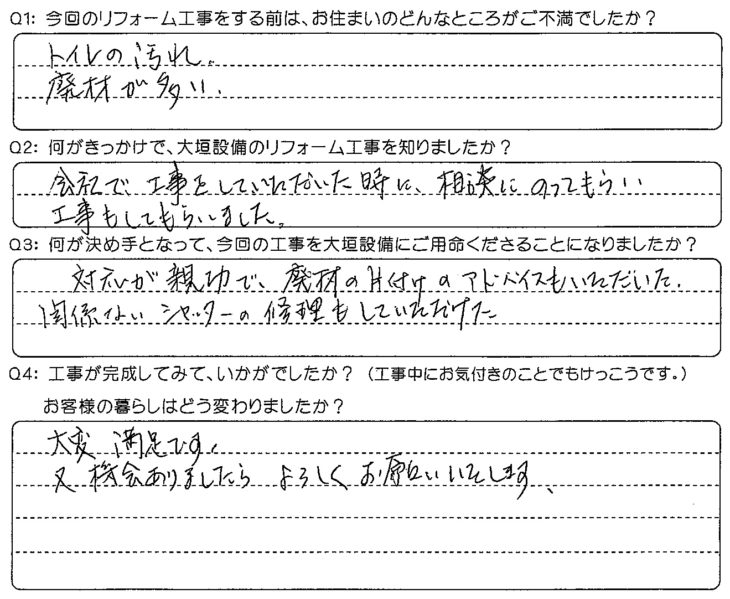 Q1: 今回のリフォーム工事をする前は、お住まいのどんなところがご不満でしたか？
トイレの汚れ。
廃材が多い．
Q2: 何がきっかけで、大垣設備のリフォーム工事を知りましたか？
会社で工事をしていただいた時に、相談にのってもらい
工事もしてもらいました。
Q3: 何が決め手となって、今回の工事を大垣設備にご用命くださることになりましたか？
対応が親切で、廃材の片付けのアドバイスもいただいた．
関係ないシャッターの修理もしていただけた
Q4: 工事が完成してみて、いかがでしたか？（工事中にお気付きのことでもけっこうです。）
お客様の暮らしはどう変わりましたか？
大変満足です、
又機会ありましたらよろしくお願いいたします、